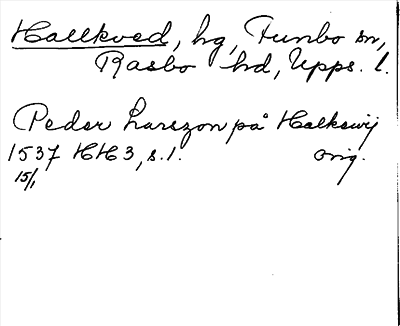 Hallkved, hg, Funbo sn,
Rasbo hd, Upps. l.
Peder Larszon på Halkewij
1537 HH3, s. 1. orig.
15/1